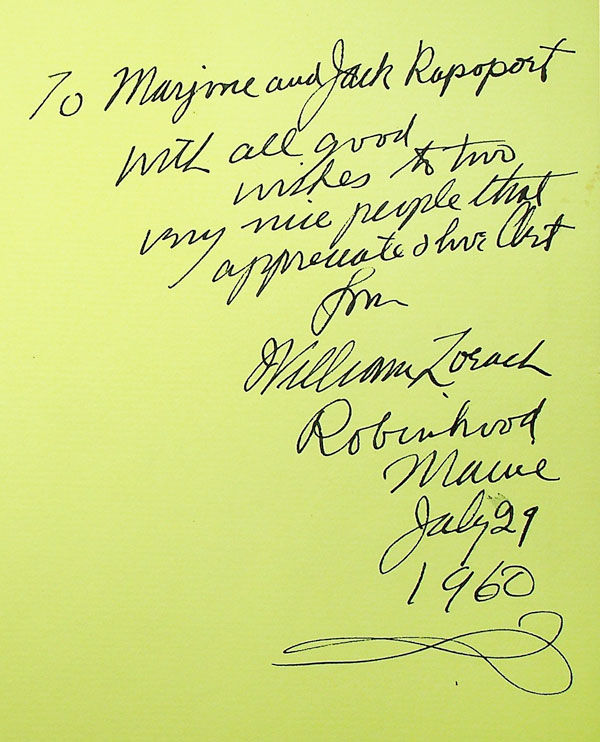 To Marjorie and Jack Rapoport
with all good
wishes to two
very nice people that
appreciate & love Art
from
William Zorach
Robinhood
Maine
July 29
1960